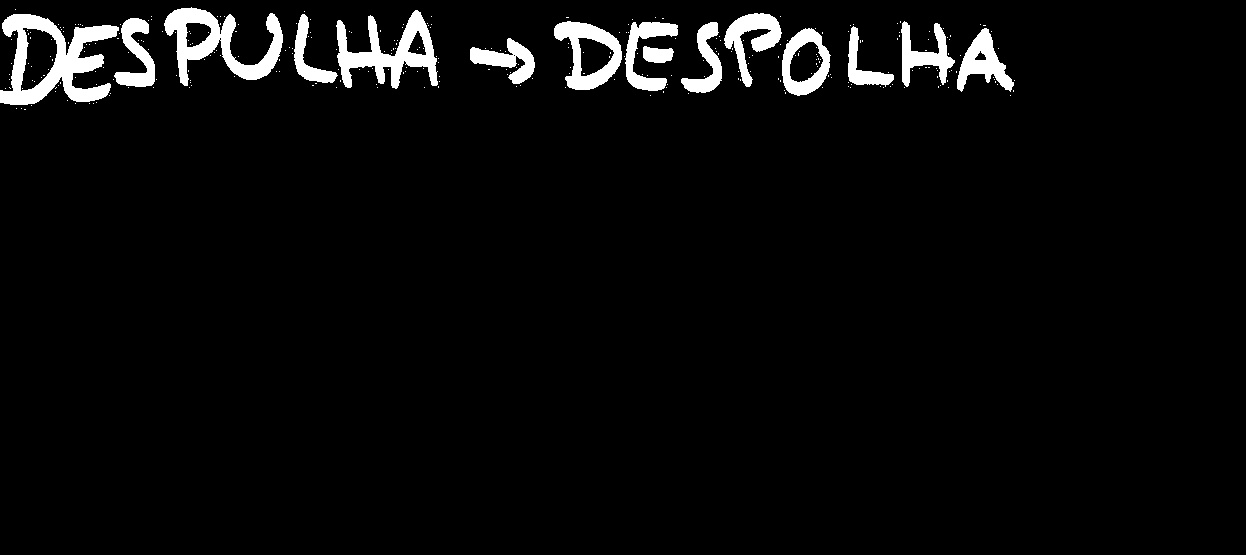 DESPULHA → DESPOLHA